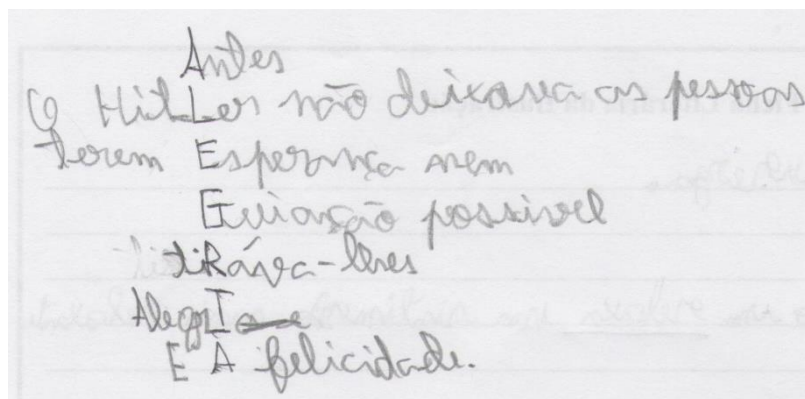 Antes
O HitLer não deixava as pessoas
terem Esperança nem
Guiação possivel
tiRáva-lhes
AlegI
E A felicidade.